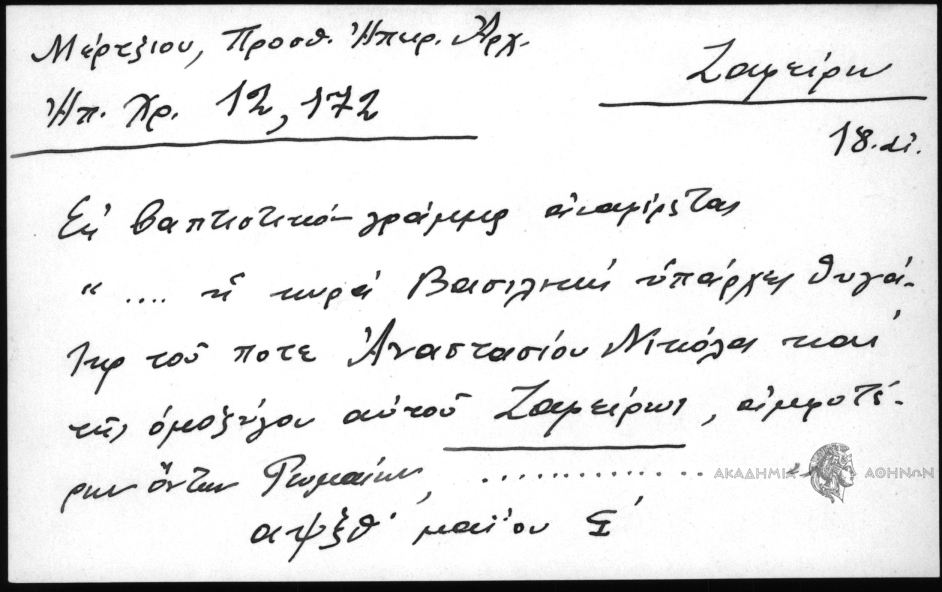 Μέρτζιου, Προσθ. Ἠπειρ. Ἀρχ.
Ἠπ. Χρ. 12, 172
Ζαφείρω
18. αἰ.
Ἐν βαπτιστικό γράμμα ἀναφέρεται
“ .... ἡ κυρά Βασιλική ὑπάρχει θυγά-
τηρ τοῦ ποτε Ἀναστασίου Νικόλα καί
τῆς ὁμοζύγου αὐτοῦ Ζαφείρως, ἀμφοτέ-
ρων ὄντων Ρωμαίων, ...............
ΑΚΑΔΗΜΙΑ ΑΘΗΝΩΝ
αψξθ΄ μαΐου